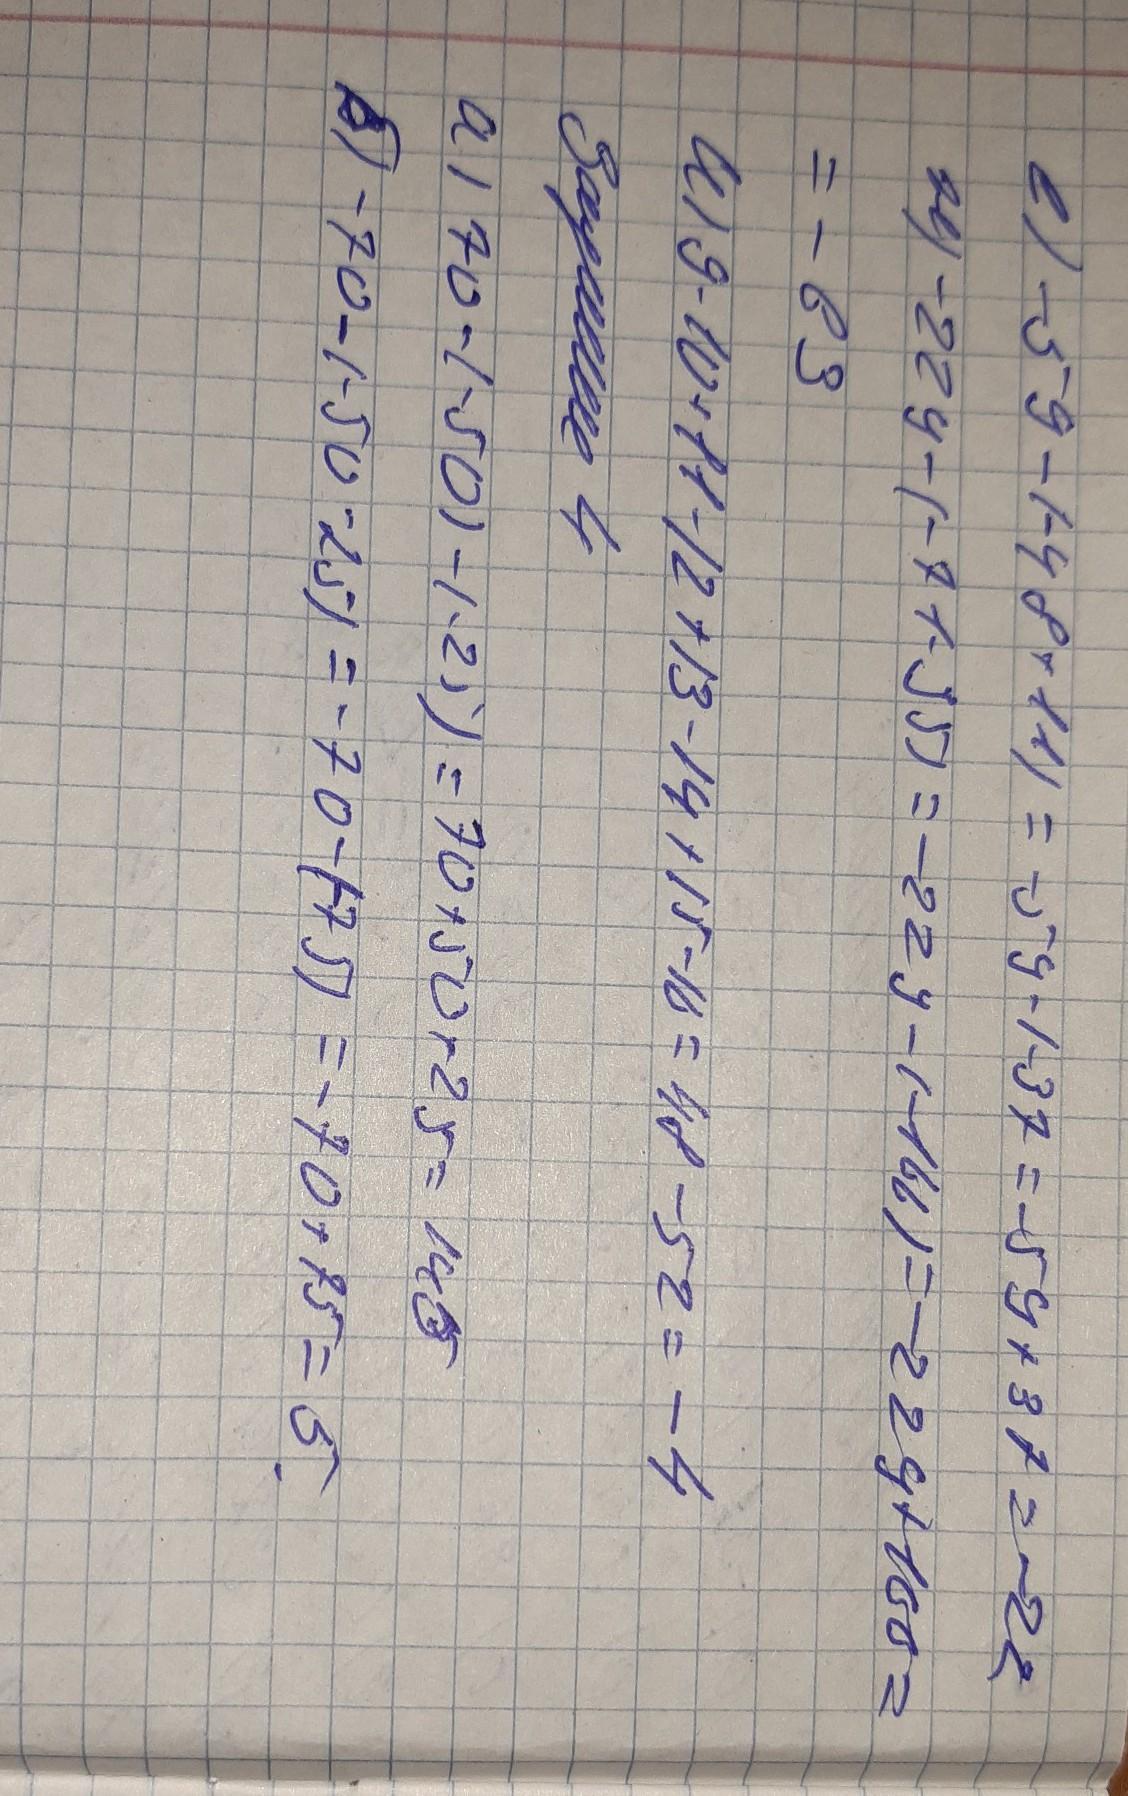 е) -59-(-48+11) = -59-(-37 = -59+37 = -22
ж) -229-(-7+-55) = -229-(-166) = -229+166 =
= -63
и) 9-10+11-12+13-14+15-16 = 48-52 = -4
Задание 4
а) 70-(-50)-(-25) = 70+50+25 = 145
б) -70-(-50-25) = -70-(-75) = -70+75 = 5.